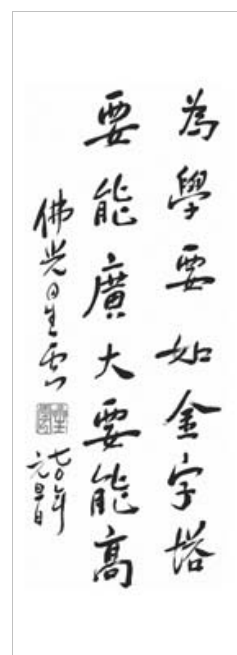 為學要如金字塔
要能廣大要能高
佛光星雲
七〇年
元旦日